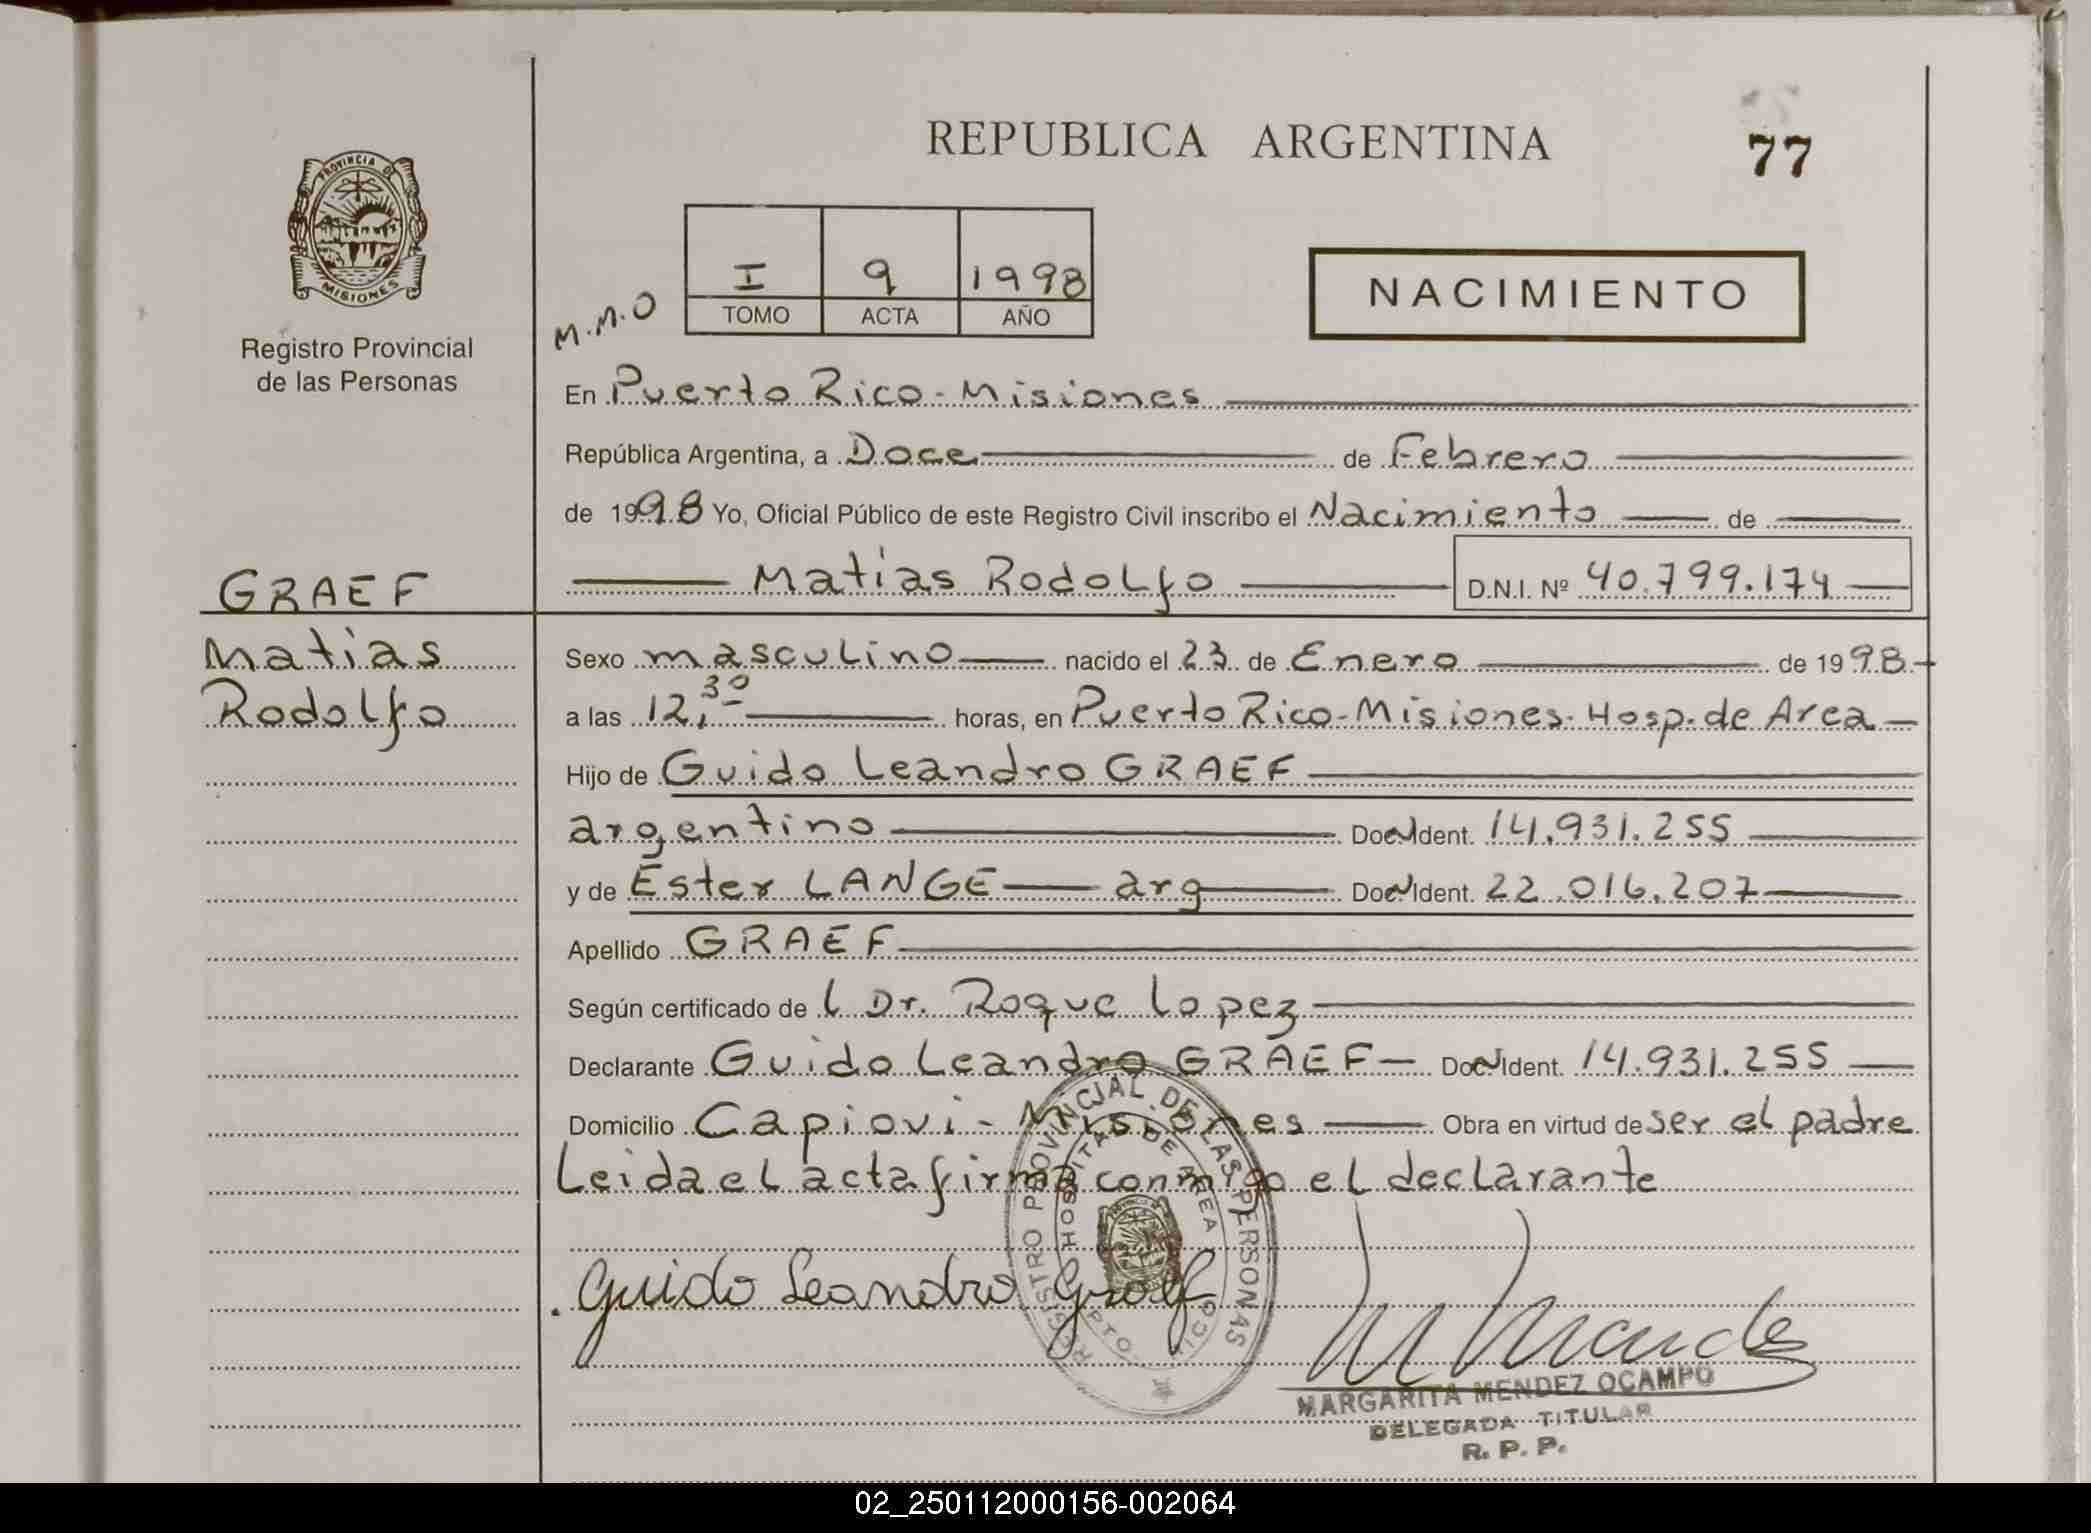 REPUBLICA ARGENTINA
77
PROVINCIA DE
MISIONES
Registro Provincial
de las Personas
I 9 1998
TOMO ACTA AÑO
M.M.O
NACIMIENTO
En Puerto Rico - Misiones
República Argentina, a Doce de Febrero
de 1998 Yo, Oficial Público de este Registro Civil inscribo el Nacimiento de
Matias Rodolfo D.N.I. Nº 40.799.174
GRAEF
Matias
Rodolfo
Sexo masculino nacido el 23 de Enero de 1998
a las 12,30 horas, en Puerto Rico - Misiones. Hosp. de Area
Hijo de Guido Leandro GRAEF
argentino Doc. Ident. 14.931.255
y de Ester LANGE arg Doc. Ident. 22.016.207
Apellido GRAEF
Según certificado de l Dr. Roque Lopez
Declarante Guido Leandro GRAEF Doc. Ident. 14.931.255
Domicilio Capiovi - Misiones Obra en virtud de ser el padre
Leida el acta firma conmigo el declarante
Guido Leandro Graef
REGISTRO PROVINCIAL DE LAS PERSONAS
HOSPITAL DE AREA
PTO. RICO
MARGARITA MENDEZ OCAMPO
DELEGADA TITULAR
R. P. P.
02_250112000156-002064